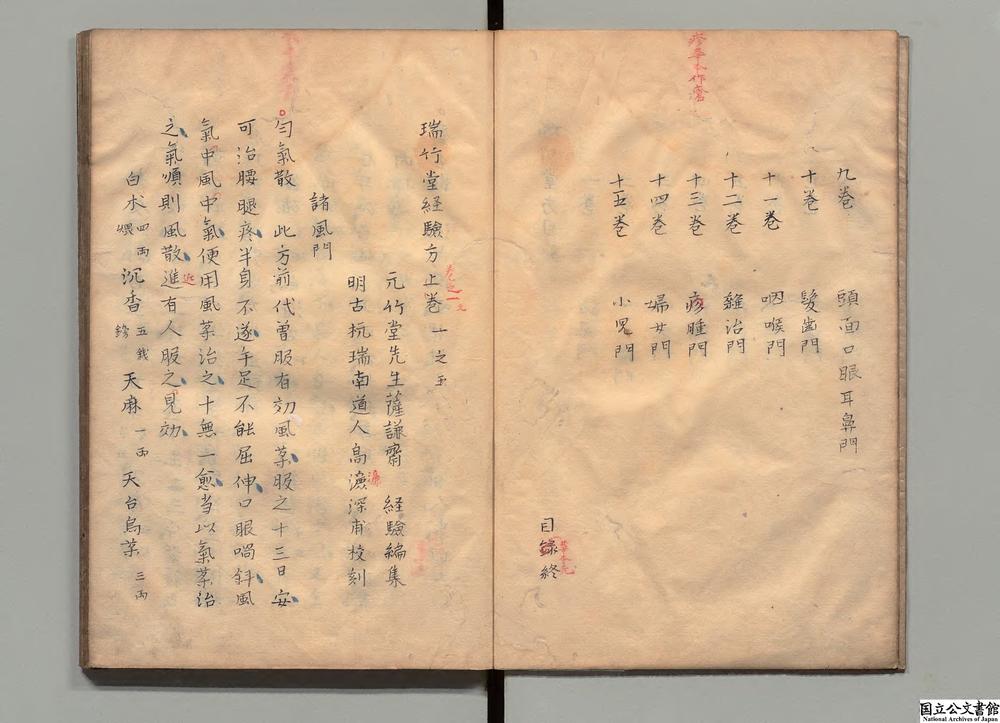 九巻　頭面口眼耳鼻門
十巻　髮齒門
十一巻　咽喉門
十二巻　雜治門
十三巻　瘡腫門
十四巻　婦女門
十五巻　小児門
目錄終
瑞竹堂経驗方上巻 一之五
元竹堂先生薩謙齋　経驗編集
明古杭瑞南道人高濂深甫校刻
諸風門
勻氣散　此方前代曽服有効風菜服之十三日安
可治腰腿疼半身不遂手足不能屈伸口眼喎斜風
氣中風中氣便用風菜治之十無一愈当以氣菜治
之氣順則風散進有人服之見効
白朮 四両 煨 沉香 五錢 鎊 天麻 一両 天台烏菜 三両
国立公文書館
National Archives of Japan